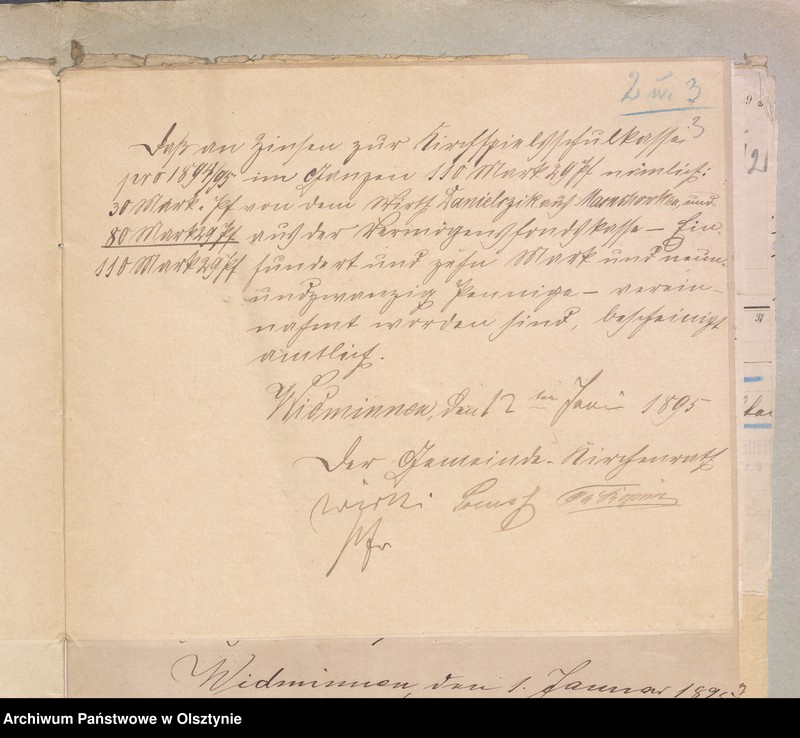 2 u. 3
3
Daß an Zinsen zur Kirchspielsschulkasse
pro 1894/95 im Ganzen 110 Mark 29 Pf nämlich:
30 Mark. Pf von dem Wirth Danielczik aus und
80 Mark 29 Pf aus der Vermögensfondskasse – Ein-
110 Mark 29 Pf hundert und zehn Mark und neun-
undzwanzig Pfennige – verein-
nahmt worden sind, bescheinigt
amtlich.
Widminnen, den 12ten Juni 1895
Der Gemeinde-Kirchenrath
Pfr
Widminnen, den 1. Januar 1895
Archiwum Państwowe w Olsztynie